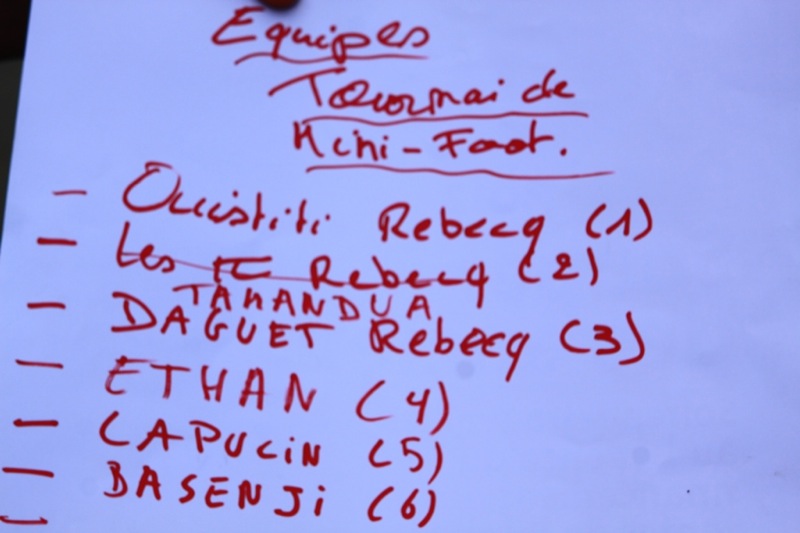 Equipes
Tournoi de
Mini-Foot.
- Ouistiti Rebecq (1)
- Les TC Rebecq (2)
TAMANDUA
- DAGUET Rebecq (3)
- ETHAN (4)
- CAPUCiN (5)
- BASENJi (6)
-